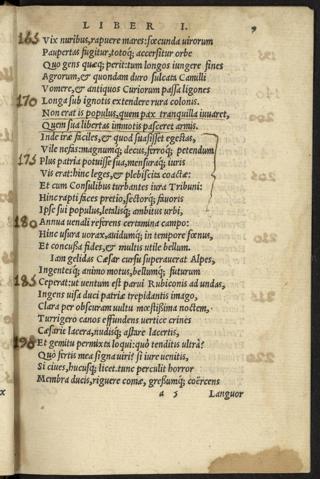 LIBER I. 9
165 Vix nuribus, rapuere mares: fœcunda uirorum
Paupertas fugitur, totoq; accersitur orbe
Quo gens quæq; perit: tum longos iungere fines
Agrorum, & quondam duro sulcata Camilli
Vomere, & antiquos Curiorum passa ligones
170 Longa sub ignotis extendere rura colonis.
Non erat is populus, quem pax tranquilla iuuaret,
Quem sua libertas immotis pasceret armis.
Inde iræ faciles, & quod suasisset egestas,
Vile nefas: magnumq; decus, ferroq; petendum
175 Plus patria potuisse sua, mensuraq; iuris
Vis erat: hinc leges, & plebiscita coactæ:
Et cum Consulibus turbantes iura Tribuni:
Hinc rapti fasces pretio, sectorq; fauoris
Ipse sui populus, letalisq; ambitus urbi,
180 Annua uenali referens certamina campo:
Hinc usura uorax, auidumq; in tempore fœnus,
Et concussa fides, & multis utile bellum.
Iam gelidas Cæsar cursu superauerat Alpes,
Ingentesq; animo motus, bellumq; futurum
185 Ceperat: ut uentum est parui Rubiconis ad undas,
Ingens uisa duci patriæ trepidantis imago,
Clara per obscuram uultu mœstissima noctem,
Turrigero canos effundens uertice crines
Cæsarie lacera, nudisq; astare lacertis,
190 Et gemitu permixta loqui: quò tenditis ultrà?
Quò fertis mea signa uiri? si iure uenitis,
Si ciues, hucusq; licet. tunc perculit horror
Membra ducis, riguere comæ, gressumq; coërcens
a 5 Languor